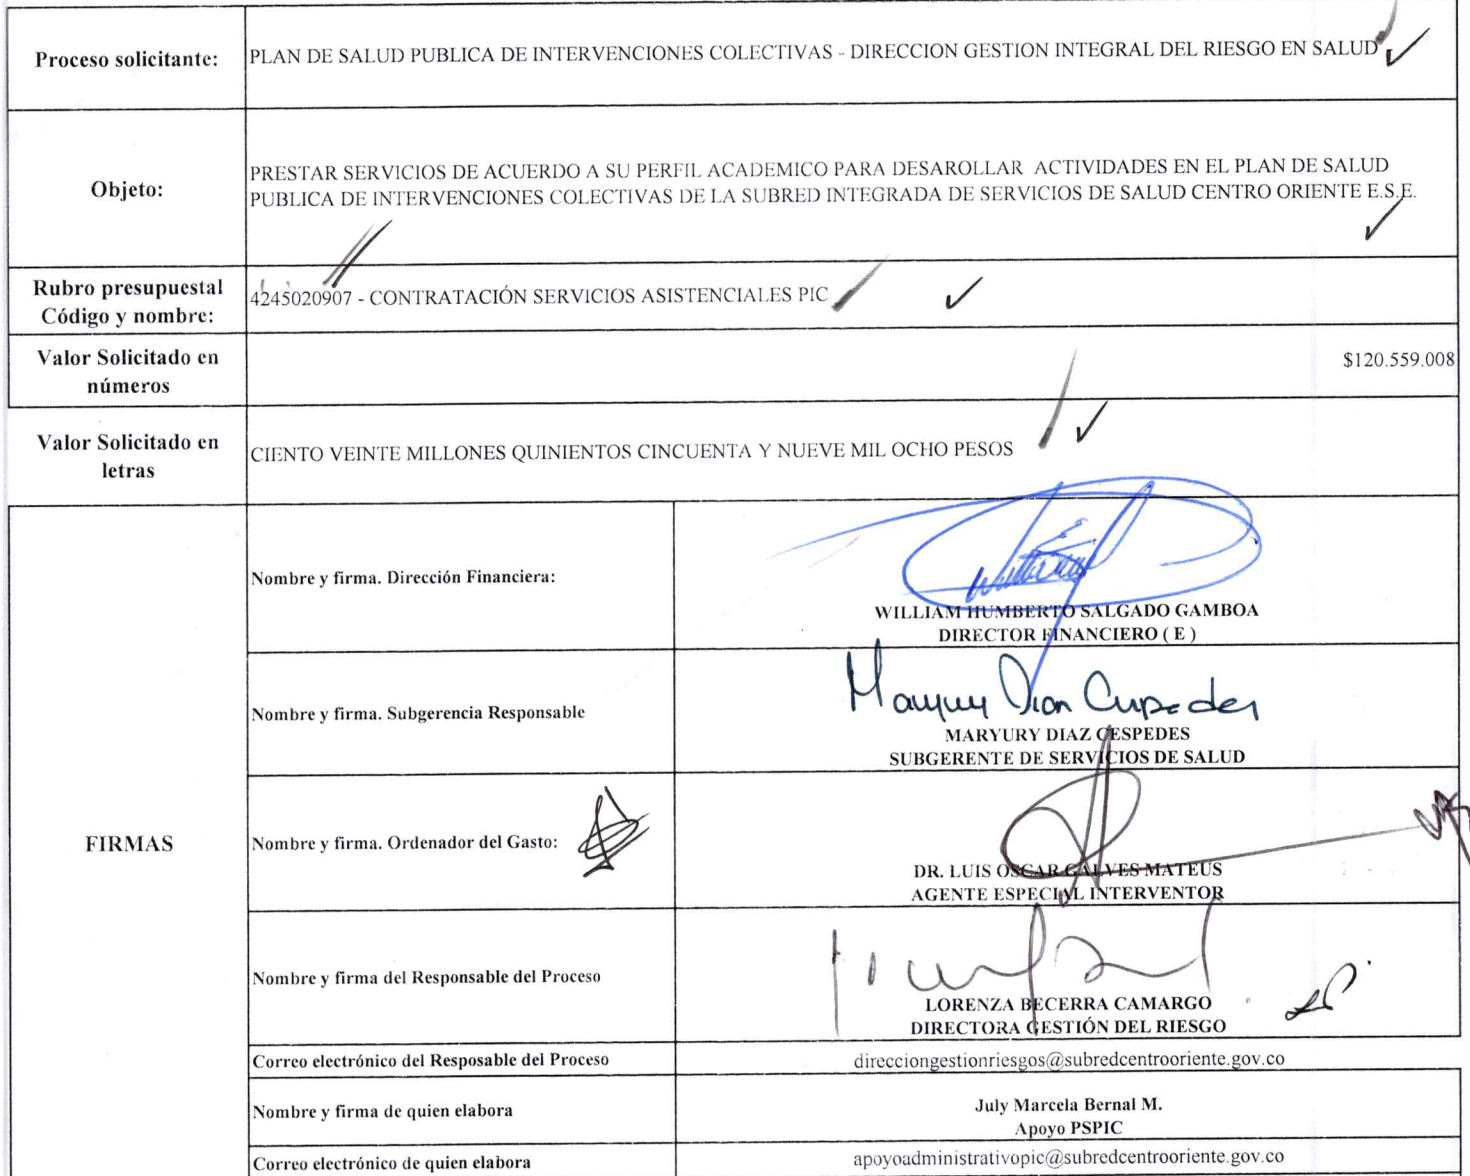 Proceso solicitante:
PLAN DE SALUD PUBLICA DE INTERVENCIONES COLECTIVAS - DIRECCION GESTION INTEGRAL DEL RIESGO EN SALUD
Objeto:
PRESTAR SERVICIOS DE ACUERDO A SU PERFIL ACADEMICO PARA DESAROLLAR ACTIVIDADES EN EL PLAN DE SALUD
PUBLICA DE INTERVENCIONES COLECTIVAS DE LA SUBRED INTEGRADA DE SERVICIOS DE SALUD CENTRO ORIENTE E.S.E.
Rubro presupuestal
Código y nombre:
4245020907 - CONTRATACIÓN SERVICIOS ASISTENCIALES PIC
Valor Solicitado en
números
$120.559.008
Valor Solicitado en
letras
CIENTO VEINTE MILLONES QUINIENTOS CINCUENTA Y NUEVE MIL OCHO PESOS
FIRMAS
Nombre y firma. Dirección Financiera:
WILLIAM HUMBERTO SALGADO GAMBOA
DIRECTOR FINANCIERO ( E )
Nombre y firma. Subgerencia Responsable
Maryury Diaz Cespedes
MARYURY DIAZ CESPEDES
SUBGERENTE DE SERVICIOS DE SALUD
Nombre y firma. Ordenador del Gasto:
DR. LUIS OSCAR GALVES MATEUS
AGENTE ESPECIAL INTERVENTOR
Nombre y firma del Responsable del Proceso
LORENZA BECERRA CAMARGO
DIRECTORA GESTIÓN DEL RIESGO
Correo electrónico del Resposable del Proceso
direcciongestionriesgos@subredcentrooriente.gov.co
Nombre y firma de quien elabora
July Marcela Bernal M.
Apoyo PSPIC
Correo electrónico de quien elabora
apoyoadministrativopic@subredcentrooriente.gov.co